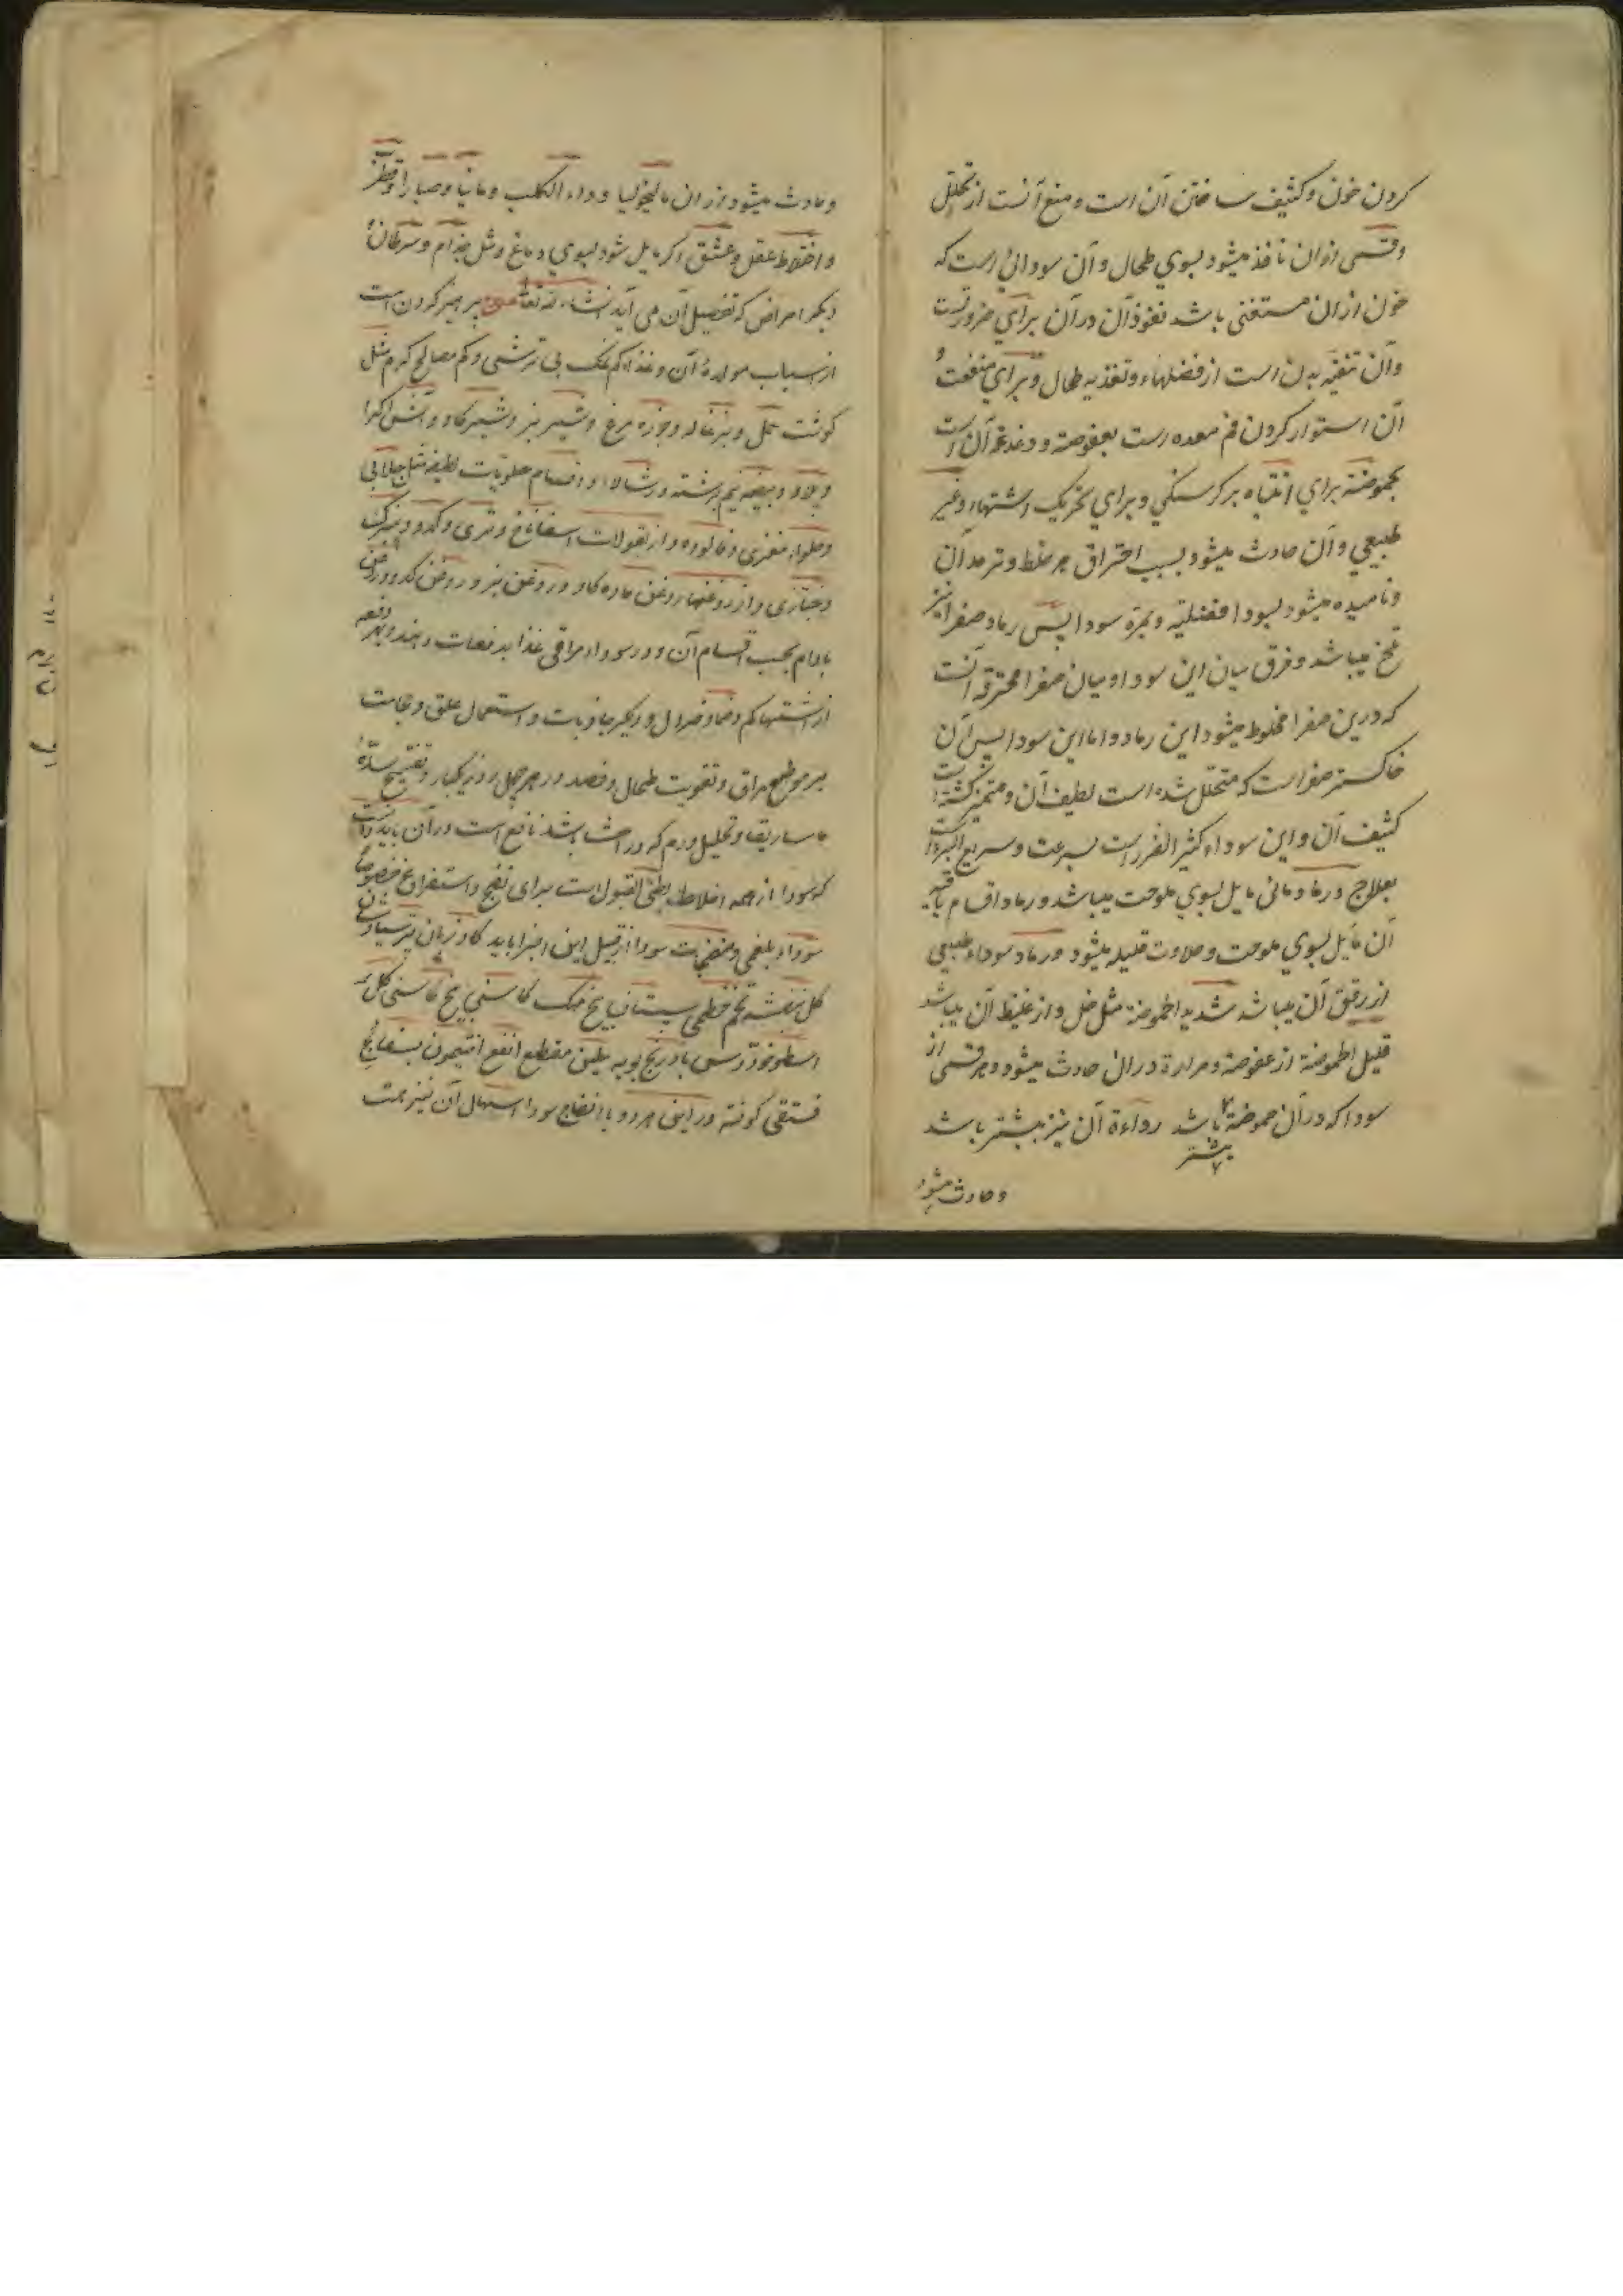 کردن خون و کثیف ساختن آن است و منع آنست از تحلل
و قسمی ازان نافذ میشود بسوی طحال و آن سودائی است که
خون ازان مستغنی باشد نفوذ آن در آن برای ضرورتست
و آن تنقیه بدن است از فضلهاء و تغذیه طحال و برای منفعت
آن استوار کردن فم معده است بعفوصة و دغدغه آن است
بحموضة برای انتباه بر گرسنگی و برای تحریک اشتهاء و غیر
طبیعی و آن حادث میشود بسبب احتراق هر خلط و ترمد آن
و نامیده میشود بسودا فضلیه و بمره سودا پس رماد صفرا نیز
تلخ میباشد و فرق میان این سودا و میان صفرا محترقه آنست
که درین صفرا مخلوط میشود این رماد و اما این سودا پس آن
خاکستر صفراست که متحلل شده است لطیف آن و متمیز گشته است
کثیف آن و این سوداء کثیر الضرر است بسرعت و سریع البرء است
بعلاج و رماد مائی مایل بسوی ملوحت میباشد و رماد اقسام باقیه
آن مایل بسوی ملوحت و حلاوت قلیله میشود و رماد سوداء طبیعی
از رقیق آن میباشد شدید الحموضة مثل خل و از غلیظ آن میباشد
قلیل الحموضة از عفوصة و مرارة دران حادث میشود و هر قسمی از
سودا که در آن حموضة باشد رداءة آن نیز بیشتر باشد
بیشتر
و حادث میشود
و حادث میشود ازان مالیخولیا و داء الکلب و مانیا و صبارا و قطرب
و اختلاط عقل و عشق اگر مایل شود بسوی دماغ و مثل جذام و سرطان و
دیگر امراض که تفصیل آن می آید انشاء الله تعالی علاج پرهیز کردن است
از اسباب مولدهٔ آن و غذا کم نمک بی ترشی و کم مصالح گرم مثل
گوشت حمل و بزغاله و جوزه مرغ و شیر بز و شیر گاو و آش
و پلاو و بیضه نیم برشته و اقسام حلویات لطیفه مثل جلابی
و حلواء مغزی و فالوده و از بقولات اسفاناخ و تری و کدو و
و خبازی و از روغنها روغن ماده گاو و روغن بز و روغن کدو و روغن
بادام بحسب اقسام آن و در سوداء مراقی غذا بدفعات دهند و
از اشتها کم و ضماد خردل و دیگر جاذبات و استعمال علق و حجامت
بر موضع مراق و تقویت طحال و فصد در هر چهل روز یکبار و تفتیح سدهٔ
ماساریقا و تحلیل ورم که در احشا باشد نافع است و در آن باید دانست
که سودا از همه اخلاط بطئی القبول است برای نضج و استفراغ خصوصاً
سوداء بلغمی و منضجات سودا از قبیل این اجزا باید گاوزبان پرسیاوشان
گل بنفشه تخم خطمی سپستان بیخ مهک کاسنی بیخ کاسنی گل
اسطوخودوس بادرنجبویه تین مقطع انفع افتیمون بسفایج
فستقی کوفته و در این هر دو با انضاج سودا اسهال آن نیز هست